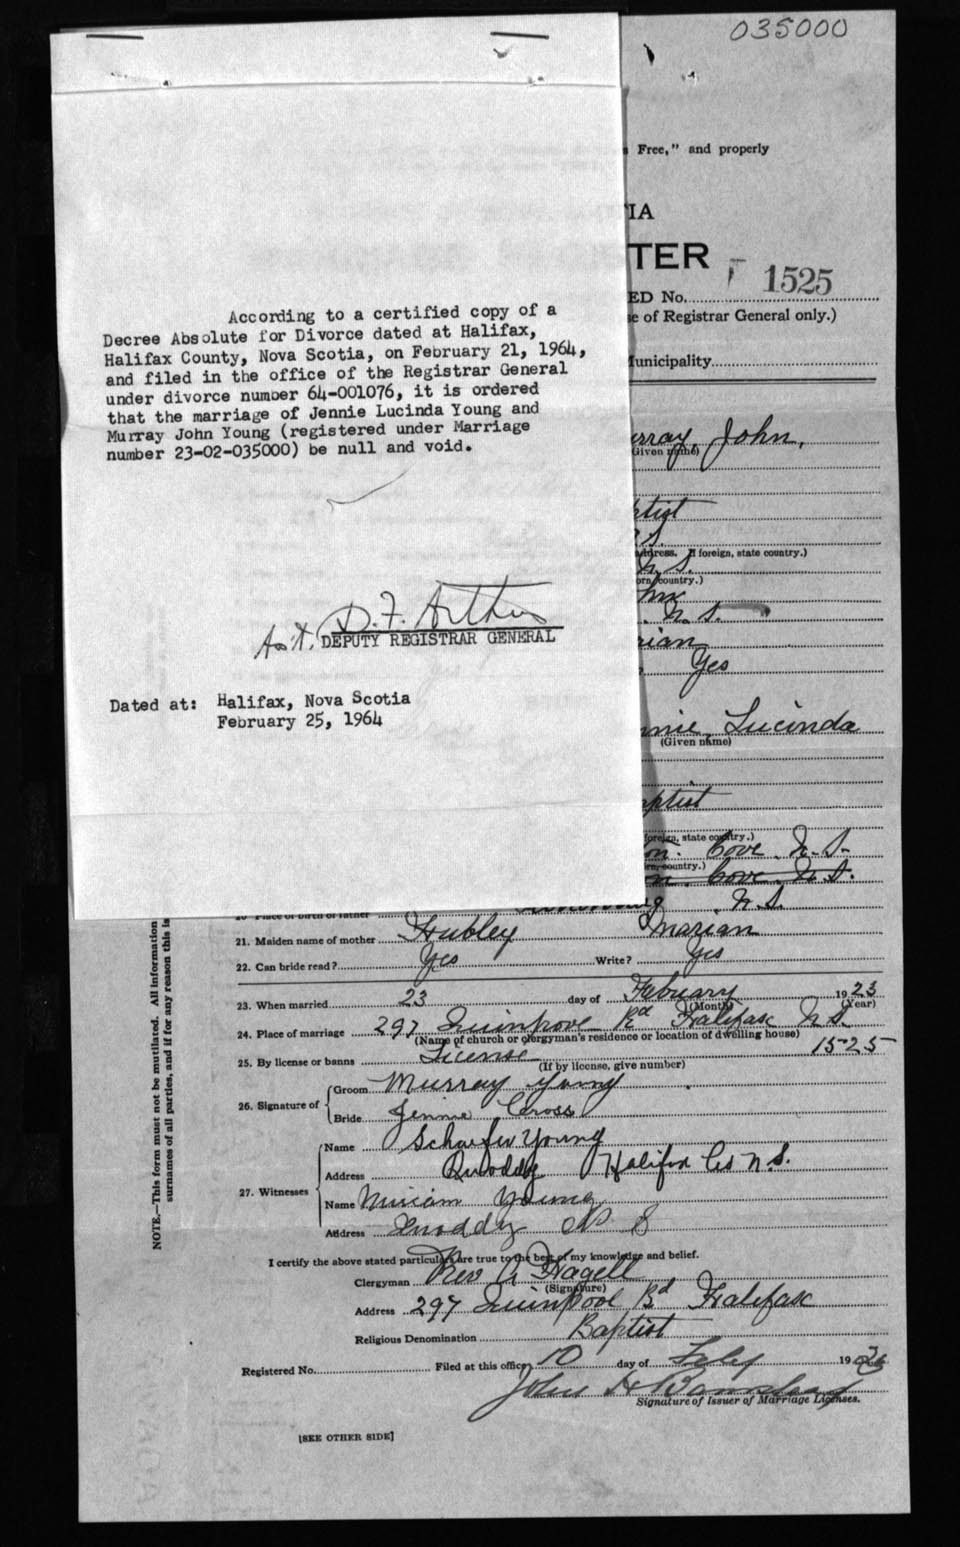 035000
Free," and properly
IA
TER
1525
ED No.
e of Registrar General only.)
Municipality
According to a certified copy of a
Decree Absolute for Divorce dated at Halifax,
Halifax County, Nova Scotia, on February 21, 1964,
and filed in the office of the Registrar General
under divorce number 64-001076, it is ordered
that the marriage of Jennie Lucinda Young and
Murray John Young (registered under Marriage
number 23-02-035000) be null and void.
D. F. Arthur
Ass't. DEPUTY REGISTRAR GENERAL
Dated at: Halifax, Nova Scotia
February 25, 1964
rray, John,
(Given name)
ptist
N.S.
address. If foreign, state country.)
N.S.
orn country.)
ohn
N.S.
rian
Yes
nnie, Lucinda
(Given name)
aptist
foreign, state country.)
on. Cove. N.S.
rn, country.)
on, Cove, N.S.
20 Place of birth of father N.S.
21. Maiden name of mother Hubley Marian
22. Can bride read? Yes Write? Yes
23. When married 23 day of February 1923
(Month) (Year)
24. Place of marriage 297 Quinpool Rd Halifax N.S.
(Name of church or clergyman's residence or location of dwelling house)
25. By license or banns License 1525
(If by license, give number)
26. Signature of Groom Murray Young
Bride Jennie Cross
27. Witnesses Name Schaefer Young
Address Quoddy Halifax Co N.S.
Name Miriam Young
Address Quoddy N S
I certify the above stated particulars are true to the best of my knowledge and belief.
Clergyman Rev A Hagell
(Signature)
Address 297 Quinpool Rd Halifax
Religious Denomination Baptist
Registered No. Filed at this office 10 day of 19
John H
Signature of Issuer of Marriage Licenses.
[SEE OTHER SIDE]
NOTE.—This form must not be mutilated. All information
surnames of all parties, and if for any reason this is